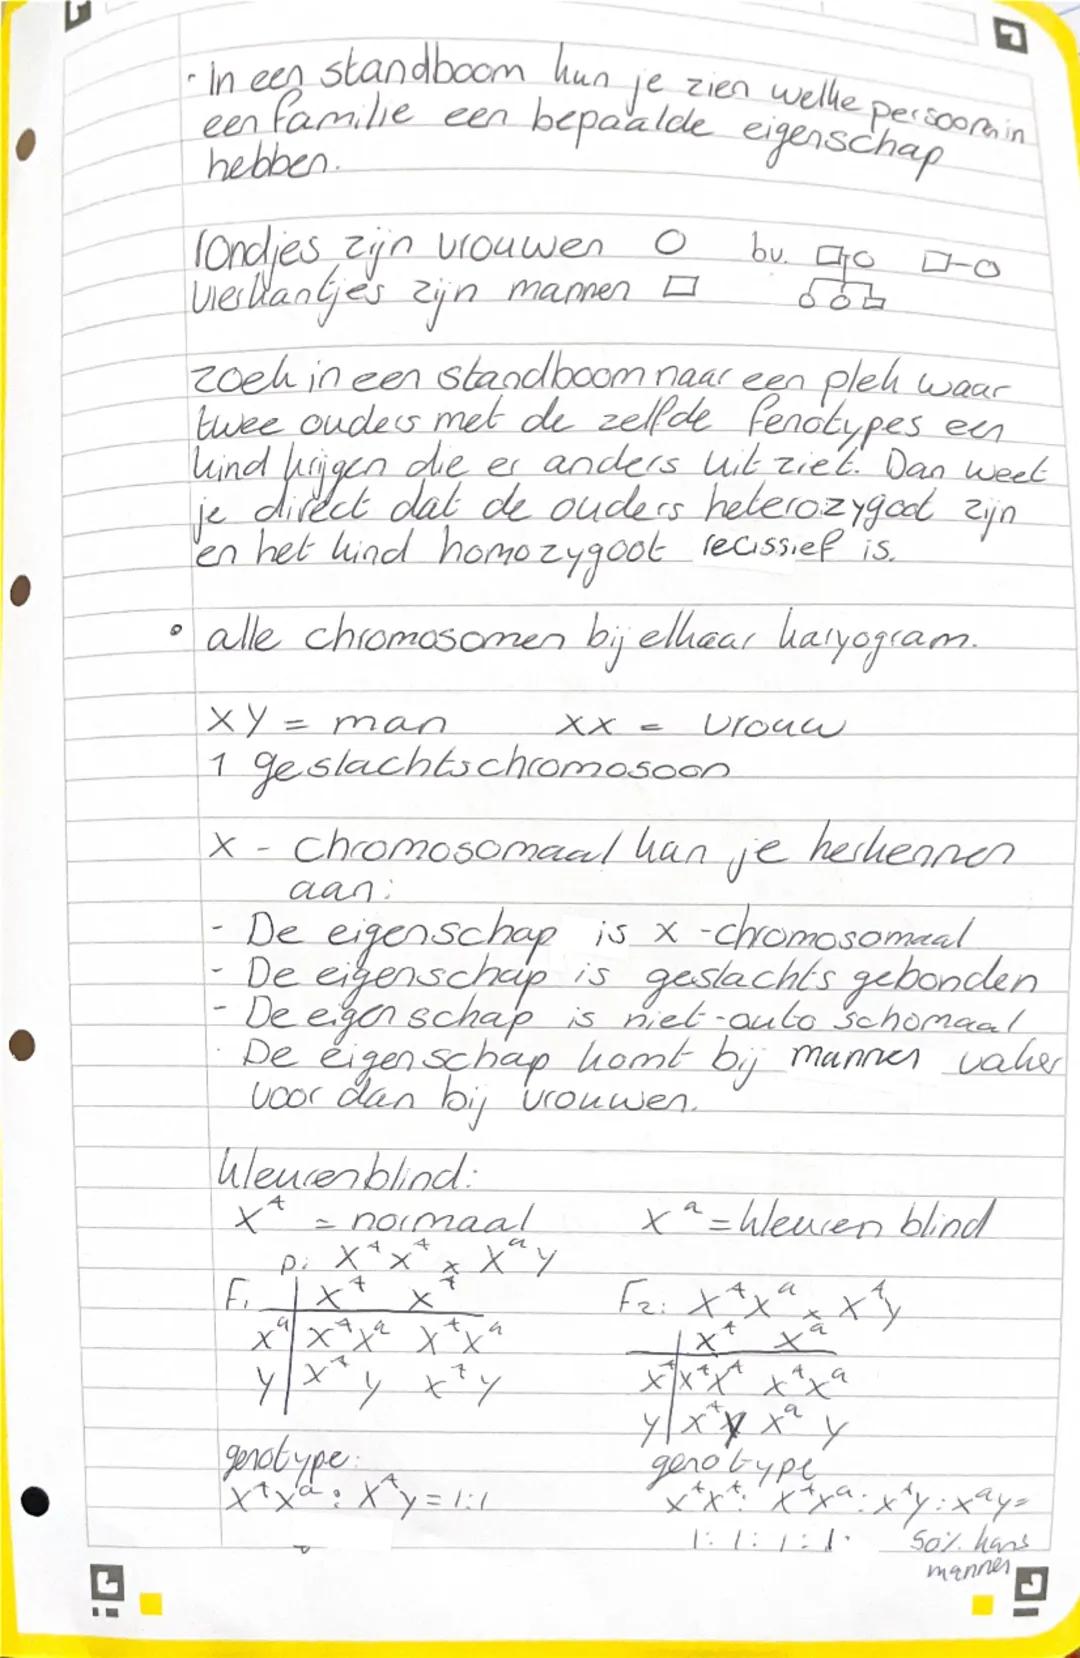 · In een standboom kun je zien welke persoon in
een familie een bepaalde eigenschap
hebben.
rondjes zijn vrouwen ○ bv.
vierkantjes zijn mannen □
zoek in een standboom naar een plek waar
twee ouders met de zelfde fenotypes een
kind krijgen die er anders uit ziet. Dan weet
je direct dat de ouders heterozygoot zijn
en het kind homozygoot recissief is.
° alle chromosomen bij elkaar karyogram.
XY = man XX = vrouw
1 geslachtschromosoon
X - chromosomaal kan je herkennen
aan:
- De eigenschap is x-chromosomaal
- De eigenschap is geslachts gebonden
- De eigenschap is niet-auto schomaal
- De eigenschap komt bij mannen vaker
voor dan bij vrouwen.
kleurenblind:
Xᴬ = normaal Xᵃ = kleuren blind
P: Xᴬ Xᴬ x Xᵃ y
F₁ Xᴬ Xᴬ F₂: Xᴬ Xᵃ x Xᴬ y
Xᵃ XᴬXᵃ XᴬXᵃ Xᴬ Xᵃ
y Xᴬ y Xᴬ y Xᴬ XᴬXᴬ XᴬXᵃ
y Xᴬ y Xᵃ y
genotype: genotype
XᴬXᵃ : Xᴬy = 1:1 XᴬXᴬ: XᴬXᵃ: Xᴬy: Xᵃy=
1: 1: 1: 1. 50% kans
mannen